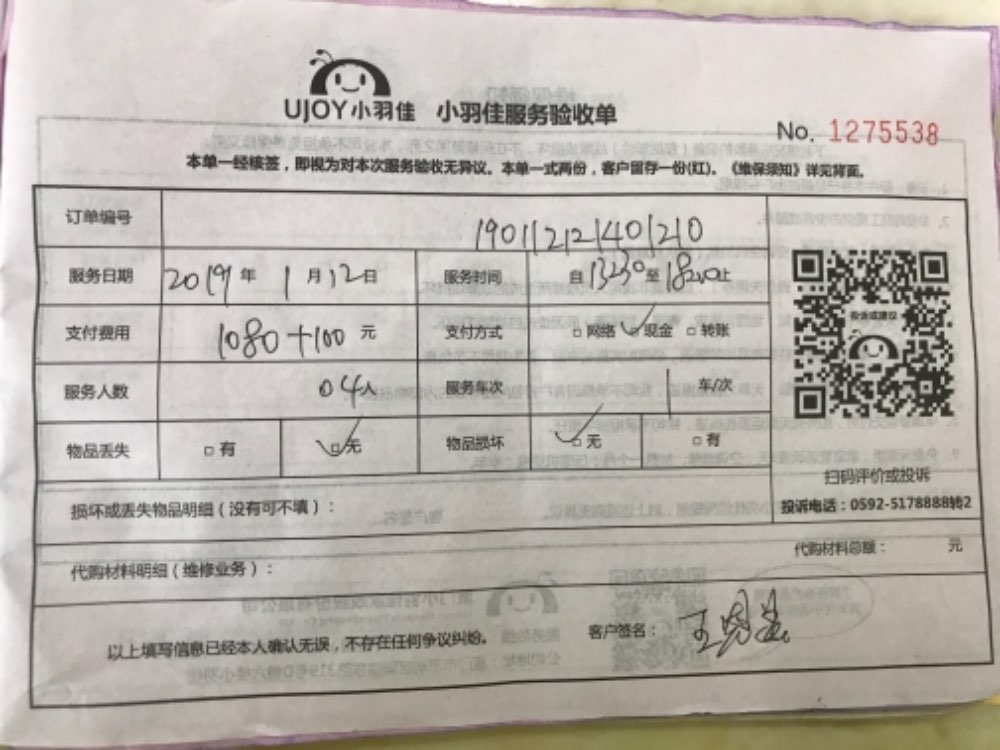 UJOY小羽佳 小羽佳服务验收单
No. 1275538
本单一经核签，即视为对本次服务验收无异议。本单一式两份，客户留存一份(红)。《维保须知》详见背面。
订单编号 190112121401210
服务日期 2019年1月12日 服务时间 自1330至1820止
支付费用 1080+100元 支付方式 □网络 ✓现金 □转账
服务人数 04人 服务车次 1车/次
物品丢失 □有 ☑无 物品损坏 ☑无 □有
投诉或建议
扫码评价或投诉
损坏或丢失物品明细（没有可不填）：
投诉电话：0592-5178888转2
代购材料明细（维修业务）：
代购材料总额： 元
以上填写信息已经本人确认无误，不存在任何争议纠纷。
客户签名：